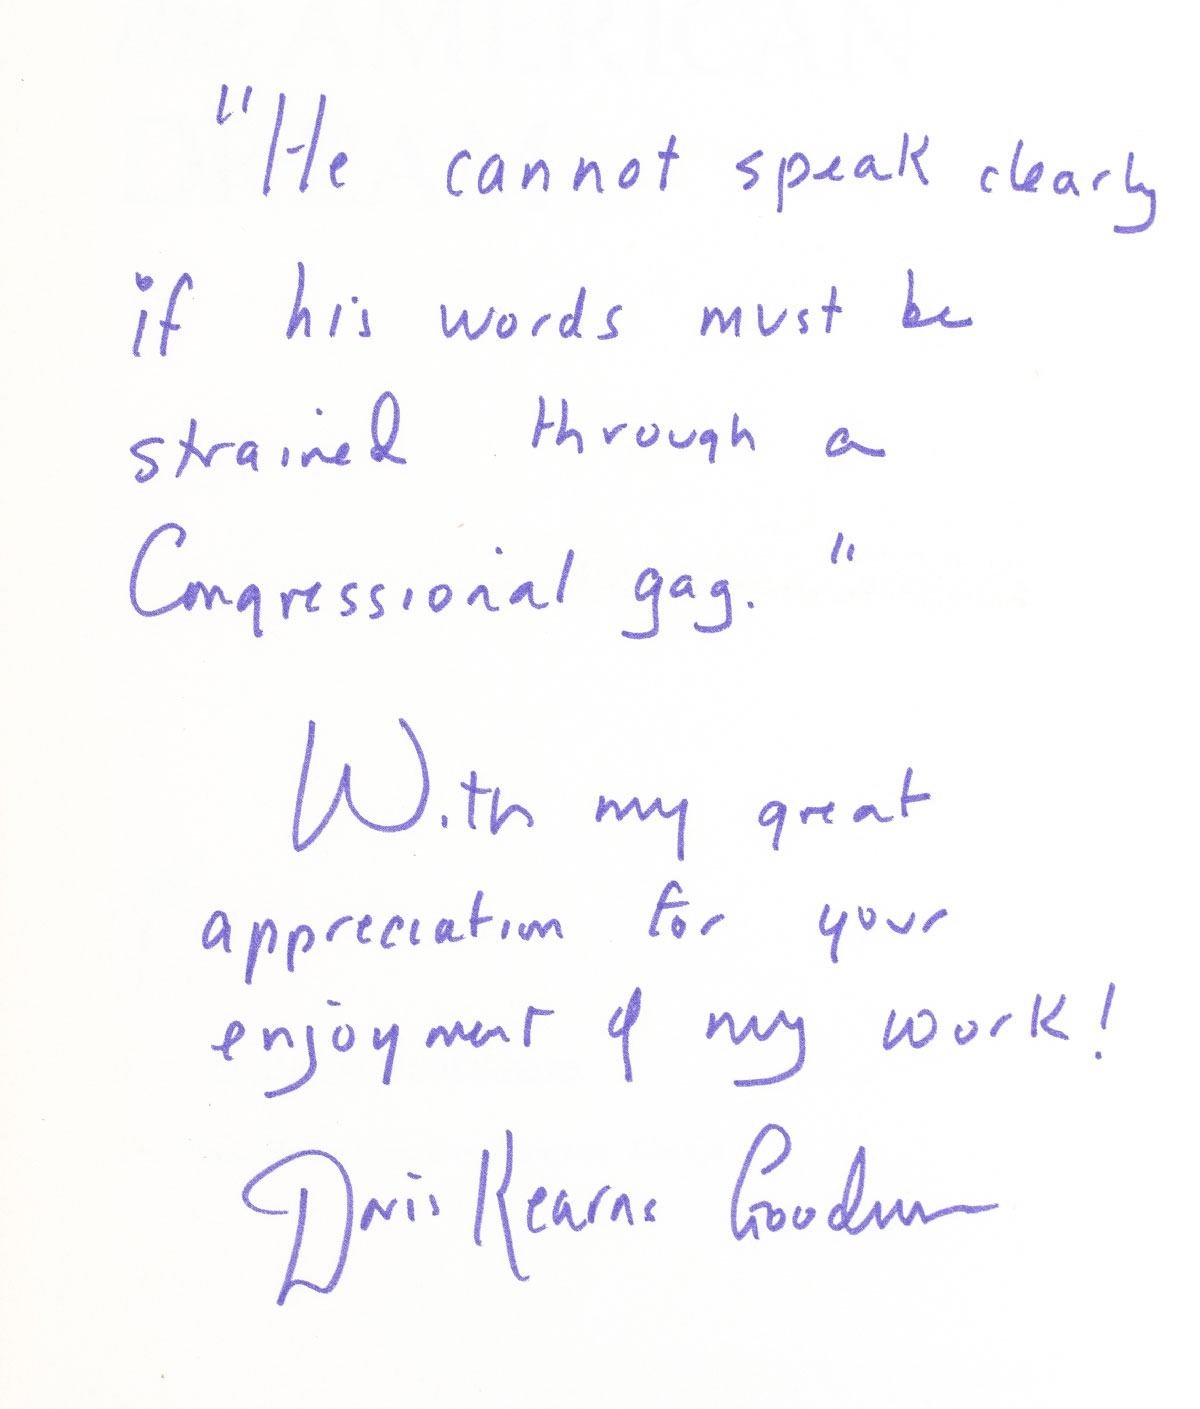 "He cannot speak clearly
if his words must be
strained through a
Congressional gag."
With my great
appreciation for your
enjoyment of my work!
Doris Kearns Goodwin